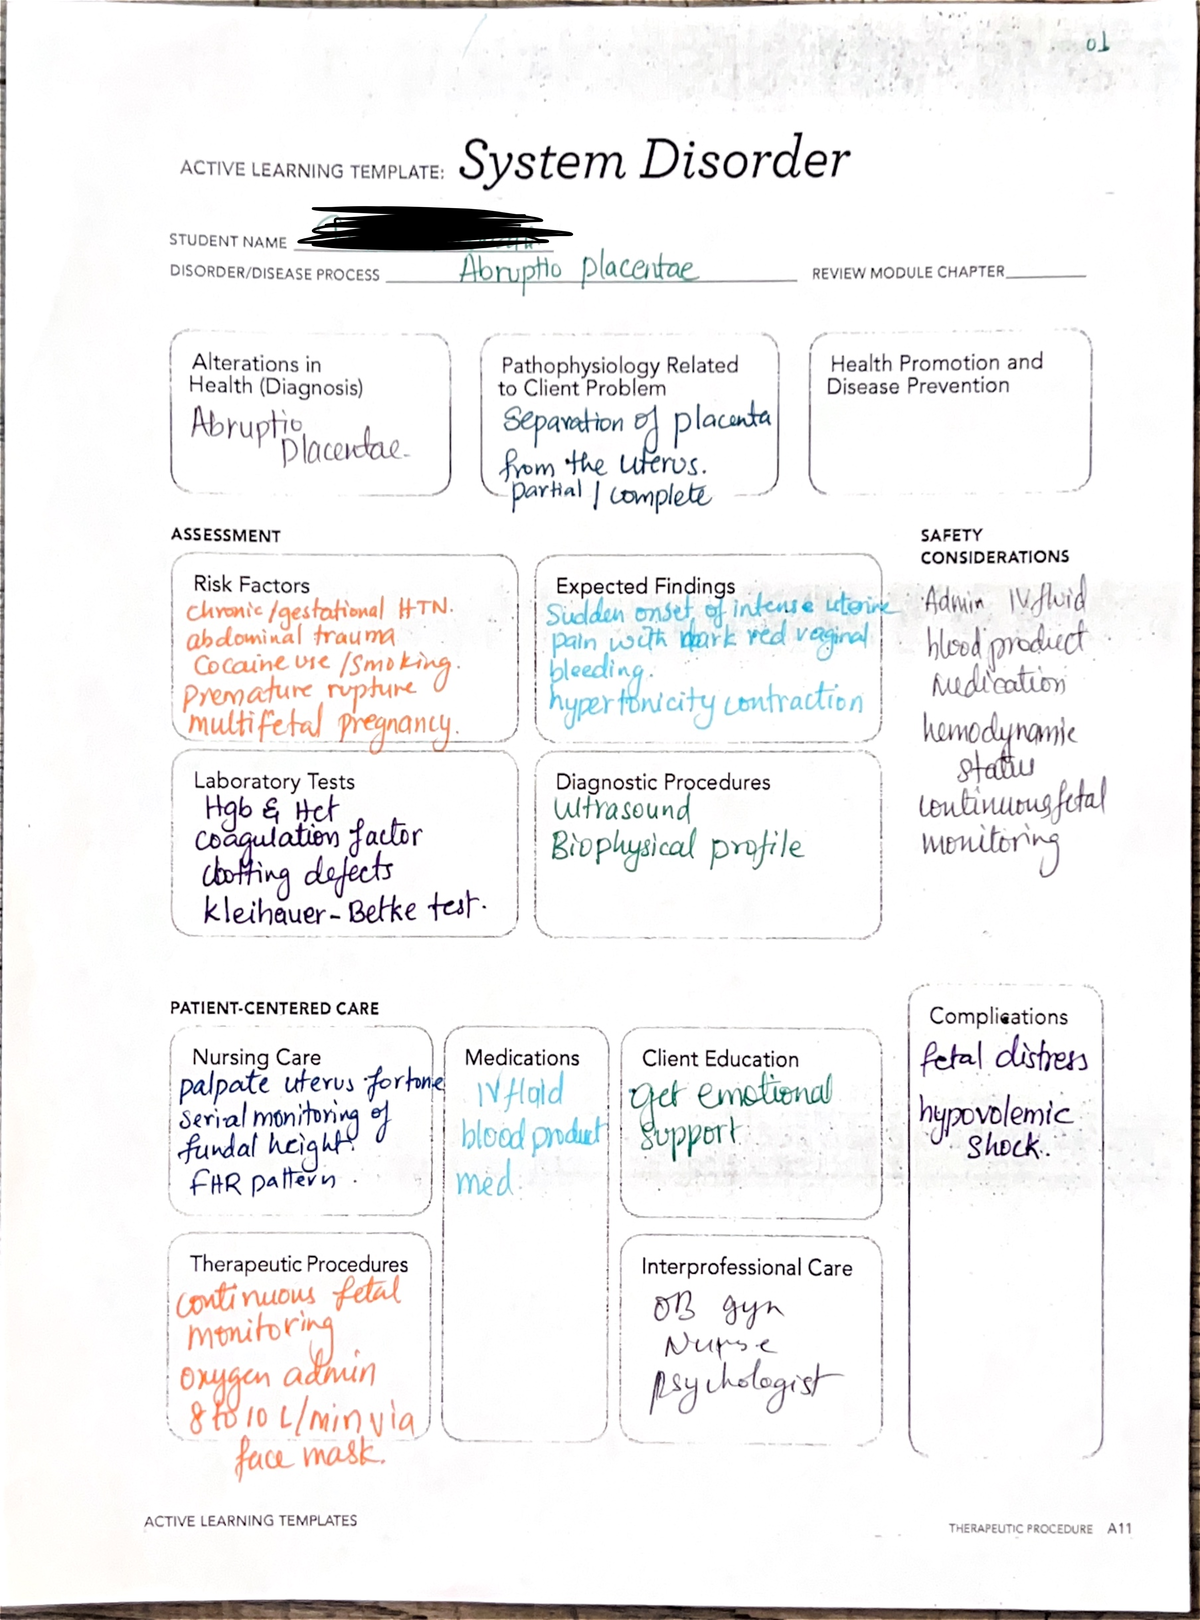 01
ACTIVE LEARNING TEMPLATE: System Disorder
STUDENT NAME
DISORDER/DISEASE PROCESS Abruptio placentae REVIEW MODULE CHAPTER
Alterations in
Health (Diagnosis)
Abruptio
placentae.
Pathophysiology Related
to Client Problem
Separation of placenta
from the uterus.
partial / complete
Health Promotion and
Disease Prevention
ASSESSMENT
Risk Factors
chronic/gestational HTN.
abdominal trauma
Cocaine use /Smoking.
premature rupture
multifetal pregnancy.
Expected Findings
Sudden onset of intense uterine
pain with dark red vaginal
bleeding.
hypertonicity contraction
SAFETY
CONSIDERATIONS
Admin IV fluid
blood product
Medication
hemodynamic
status
continuous fetal
monitoring
Laboratory Tests
Hgb & Hct
coagulation factor
clotting defects
kleihauer-Betke test.
Diagnostic Procedures
Ultrasound
Biophysical profile
PATIENT-CENTERED CARE
Nursing Care
palpate uterus for tone
serial monitoring of
fundal height.
FHR pattern.
Medications
IV fluid
blood product
med.
Client Education
get emotional
support
Complications
fetal distress
hypovolemic
shock.
Therapeutic Procedures
continuous fetal
monitoring
oxygen admin
8 to 10 L/min via
face mask.
Interprofessional Care
OB gyn
Nurse
psychologist
ACTIVE LEARNING TEMPLATES
THERAPEUTIC PROCEDURE A11